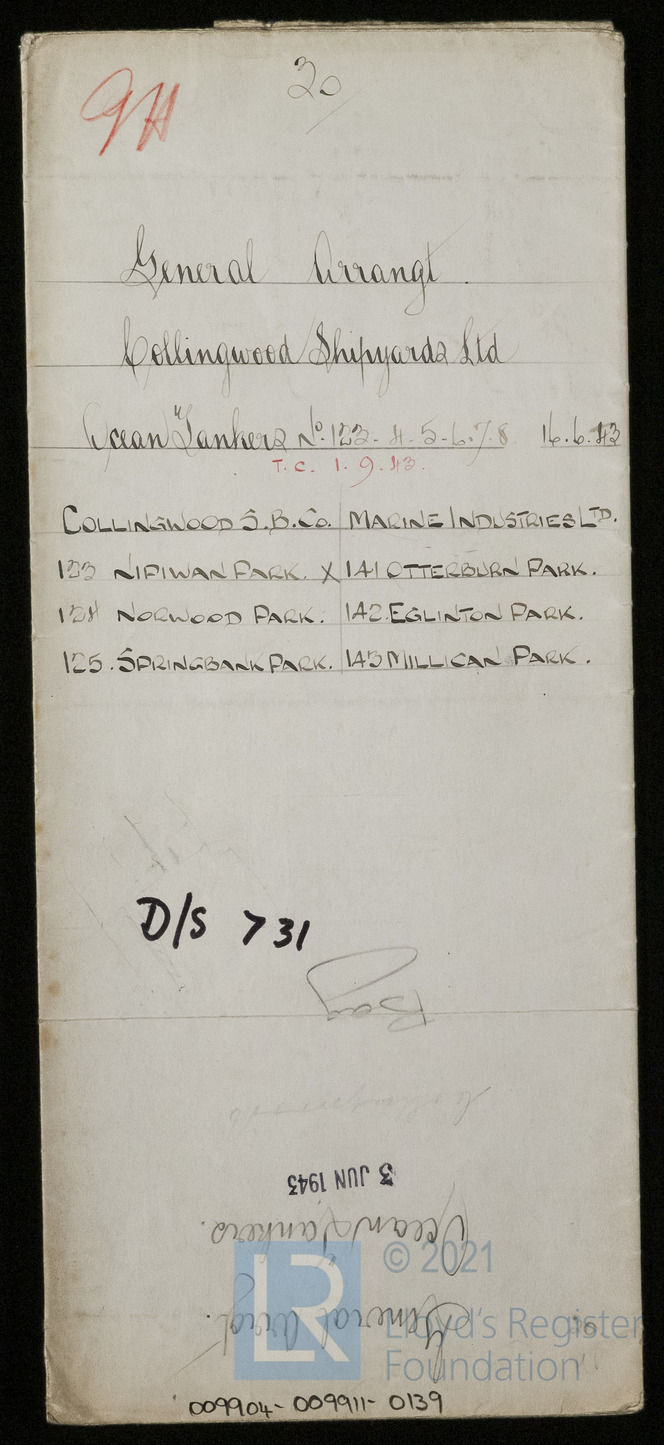 30
GA
General Arrangt.
Collingwood Shipyards Ltd
Ocean Tankers No. 123-4-5-6-7-8 16.6.43
T.C. 1.9.43.
COLLINGWOOD S.B.Co. MARINE INDUSTRIES LTD.
123 NIPIWAN PARK. X 141 OTTERBURN PARK.
124 NORWOOD PARK. 142.EGLINTON PARK.
125. SPRINGBANK PARK. 143 MILLICAN PARK.
D/S 731
Bay
Collingwood
3 JUN 1943
Ocean Tankers.
General Arrgt.
LR © 2021
Lloyd's Register
Foundation
009904-009911-0139